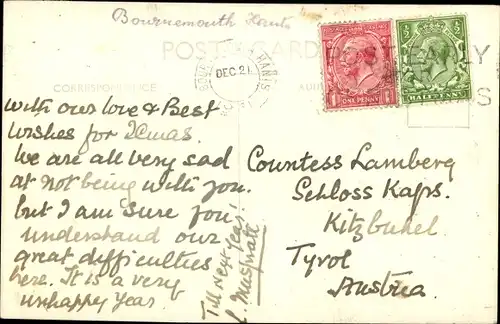 Bournemouth Hants
POST CARD
POST EARLY
CORRESPONDENCE
HANTS
DEC 21
ONE PENNY
HALFPENNY
with our love & Best
wishes for Xmas.
We are all very sad
at not being with you.
but I am sure you
understand our
great difficulties
here. It is a very
unhappy Year.
Till next Year!
Countess Lamberg
Schloss Kaps.
Kitzbuhel
Tyrol
Austria.